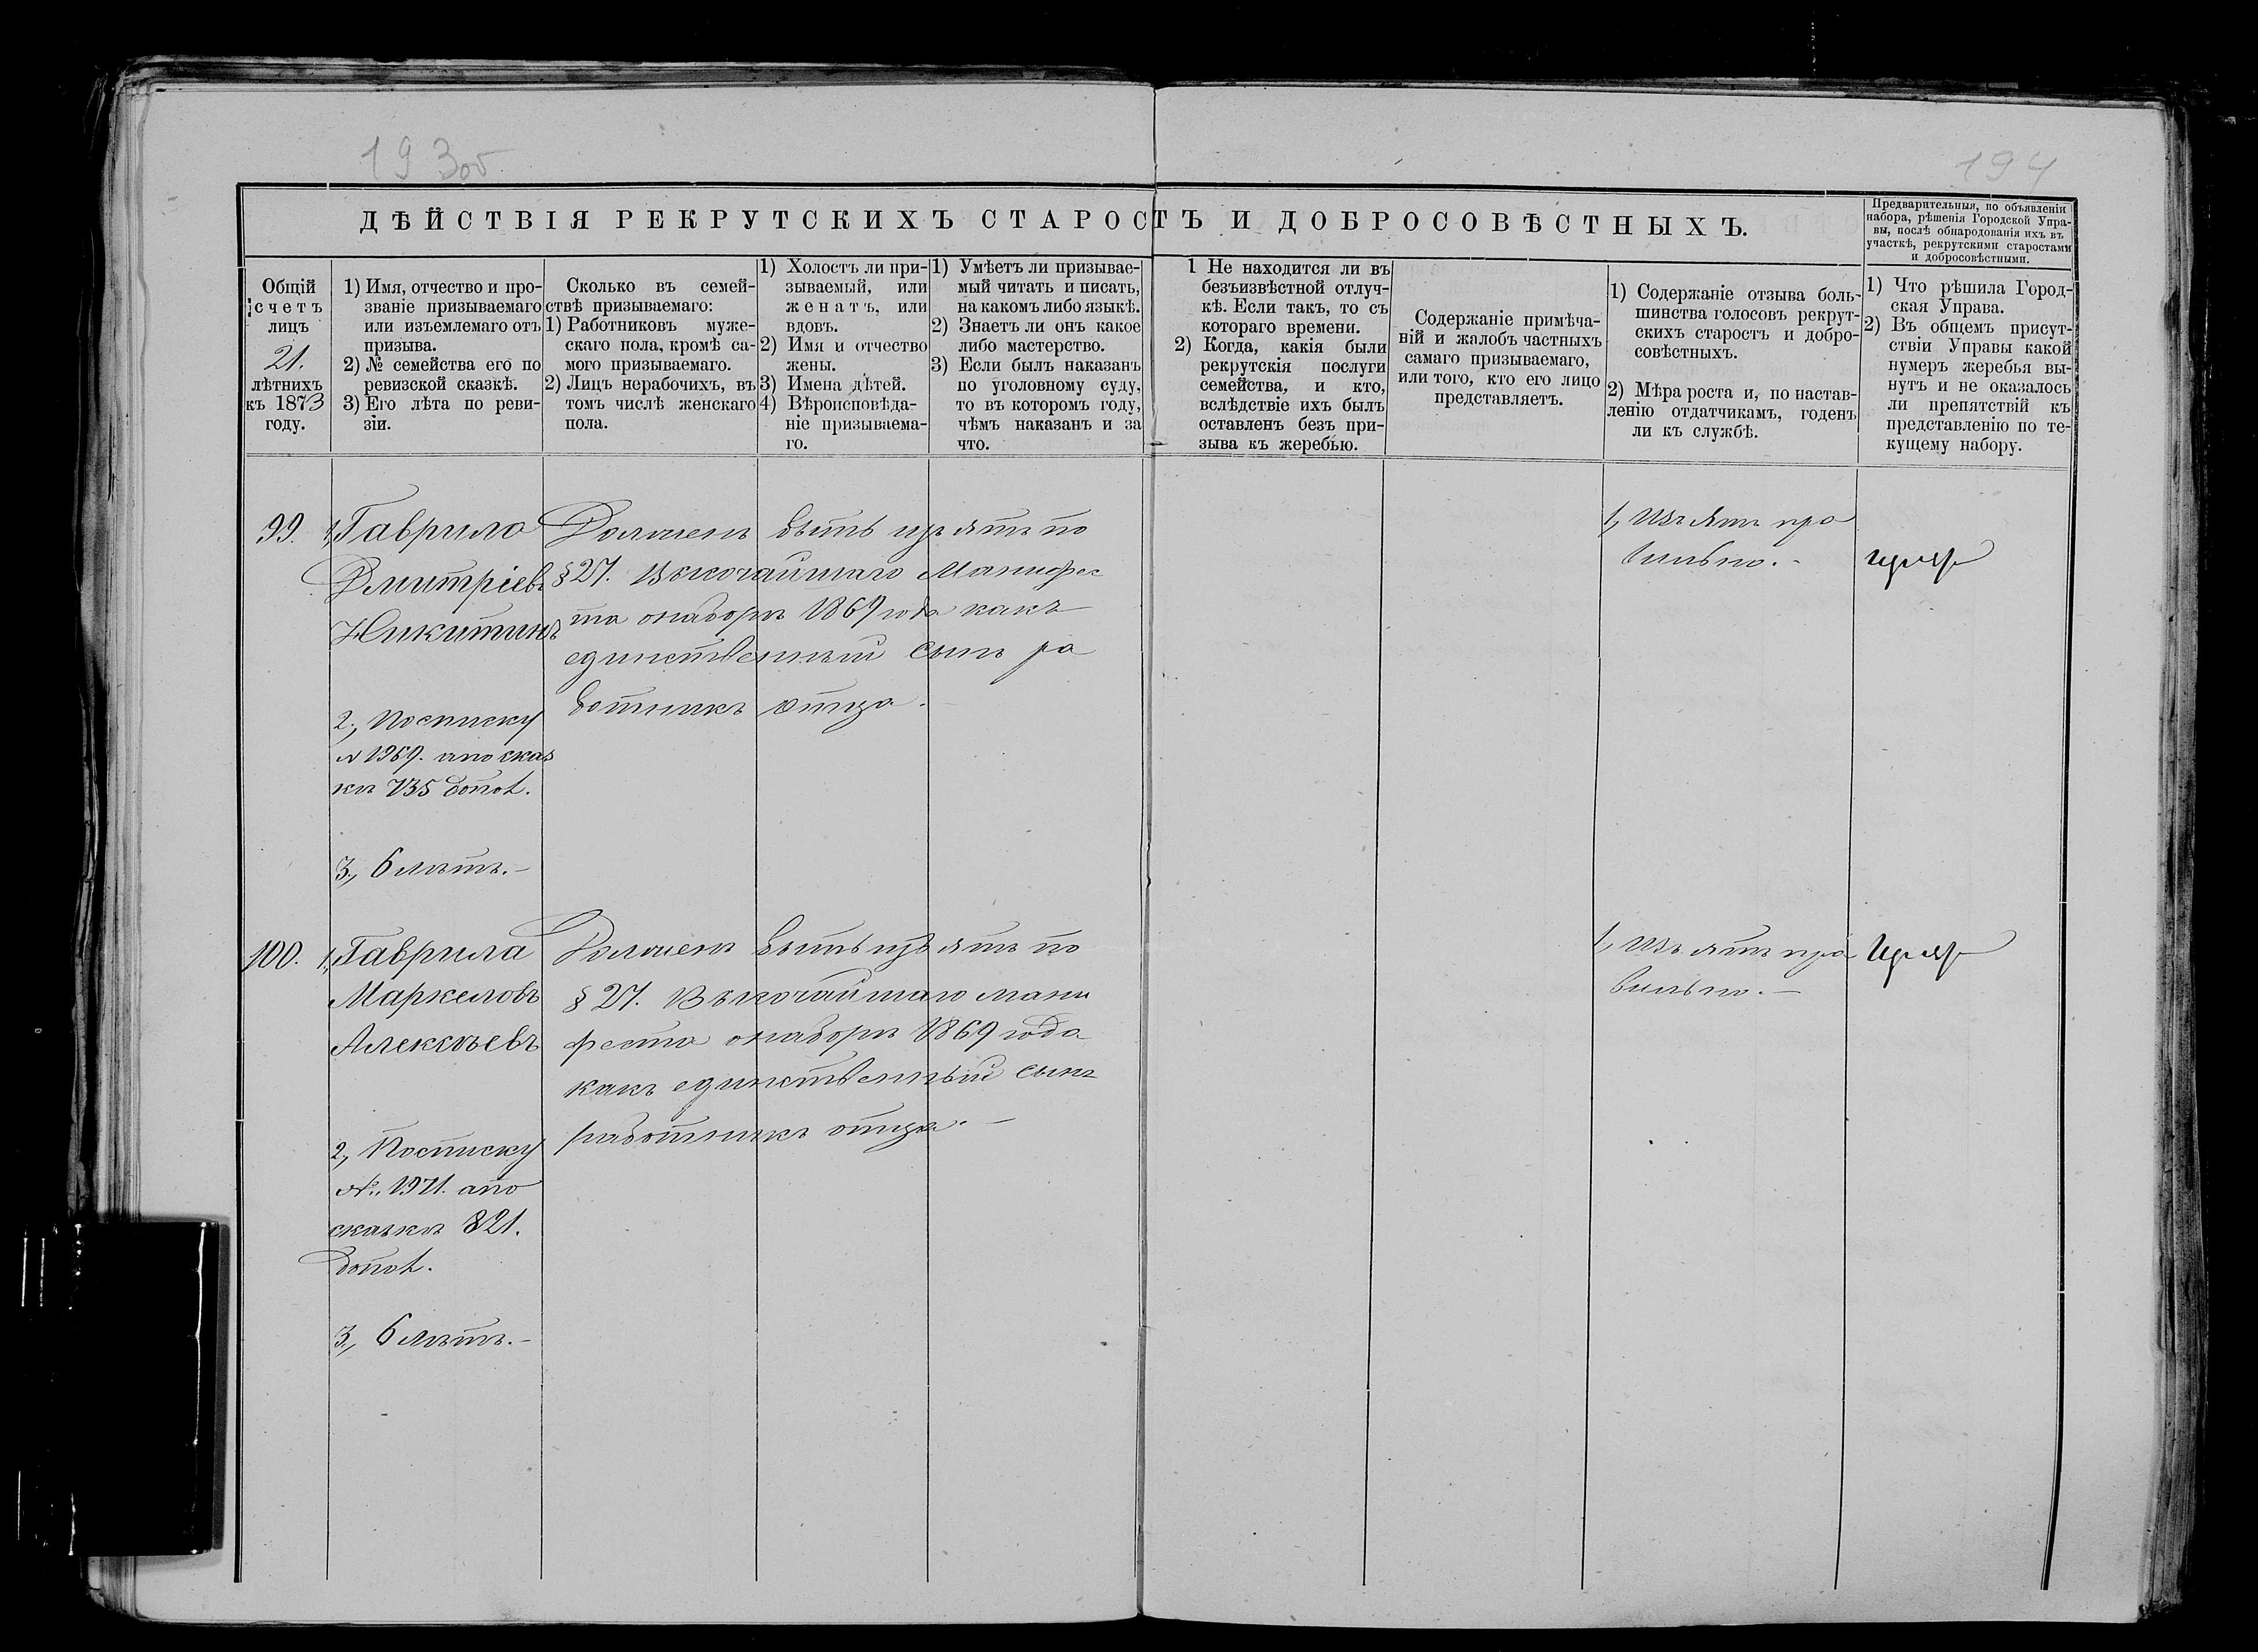 193об
194
ДѢЙСТВІЯ РЕКРУТСКИХЪ СТАРОСТЪ И ДОБРОСОВѢСТНЫХЪ.
Предварительныя, по объявленіи
набора, рѣшенія Городской Упра-
вы, послѣ обнародованія ихъ въ
участкѣ, рекрутскими старостами
и добросовѣстными.
Общій
счетъ
лицъ
21.
лѣтнихъ
къ 1873
году.
1) Имя, отчество и про-
званіе призываемаго
или изъемлемаго отъ
призыва.
2) № семейства его по
ревизской сказкѣ.
3) Его лѣта по реви-
зіи.
Сколько въ семей-
ствѣ призываемаго:
1) Работниковъ муже-
скаго пола, кромѣ са-
мого призываемаго.
2) Лицъ нерабочихъ, въ
томъ числѣ женскаго
пола.
1) Холостъ ли при-
зываемый, или
женатъ, или
вдовъ.
2) Имя и отчество
жены.
3) Имена дѣтей.
4) Вѣроисповѣда-
ніе призываема-
го.
1) Умѣетъ ли призывае-
мый читать и писать,
на какомъ либо языкѣ.
2) Знаетъ ли онъ какое
либо мастерство.
3) Если былъ наказанъ
по уголовному суду,
то въ которомъ году,
чѣмъ наказанъ и за
что.
1 Не находится ли въ
безъизвѣстной отлуч-
кѣ. Если такъ, то съ
котораго времени.
2) Когда, какія были
рекрутскія послуги
семейства, и кто,
вслѣдствіе ихъ былъ
оставленъ безъ при-
зыва къ жеребью.
Содержаніе примѣча-
ній и жалобъ частныхъ
самаго призываемаго,
или того, кто его лицо
представляетъ.
1) Содержаніе отзыва боль-
шинства голосовъ рекрут-
скихъ старостъ и добро-
совѣстныхъ.
2) Мѣра роста и, по настав-
ленію отдатчикамъ, годенъ
ли къ службѣ.
1) Что рѣшила Город-
ская Управа.
2) Въ общемъ присут-
ствіи Управы какой
нумеръ жеребья вы-
нутъ и не оказалось
ли препятствій къ
представленію по те-
кущему набору.
99.
1, Гаврило
Дмитріевъ
Никитинъ
2, По списку
№ 1969. а по сказ
кѣ 735 допол.
3, 6 лѣтъ.-
Долженъ быть изъятъ по
§ 27. Высочайшаго Манифес
та о наборѣ 1869 года какъ
единственный сынъ ра
ботникъ отца.
1, Изъятъ пра
вильно.-
100.
1, Гаврила
Маркеловъ
Алексѣевъ
2, По списку
№. 1971. а по
сказкѣ 821.
допол.
3, 6 лѣтъ.-
Долженъ быть изъятъ по
§ 27. Высочайшаго мани
феста о наборѣ 1869 года
какъ единственный сынъ
работникъ отца.-
1, Изъятъ пра
вильно.-